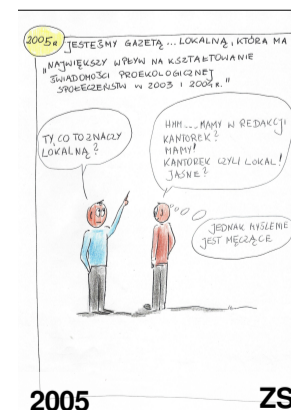 2005r JESTEŚMY GAZETĄ... LOKALNĄ, KTÓRA MA
"NAJWIĘKSZY WPŁYW NA KSZTAŁTOWANIE
ŚWIADOMOŚCI PROEKOLOGICZNEJ
SPOŁECZEŃSTW W 2003 I 2004R."
TY, CO TO ZNACZY
LOKALNĄ?
HMM.... MAMY W REDAKCJI
KANTOREK?
MAMY!
KANTOREK CZYLI LOKAL!
JASNE?
JEDNAK MYŚLENIE
JEST MĘCZĄCE
2005
ZS